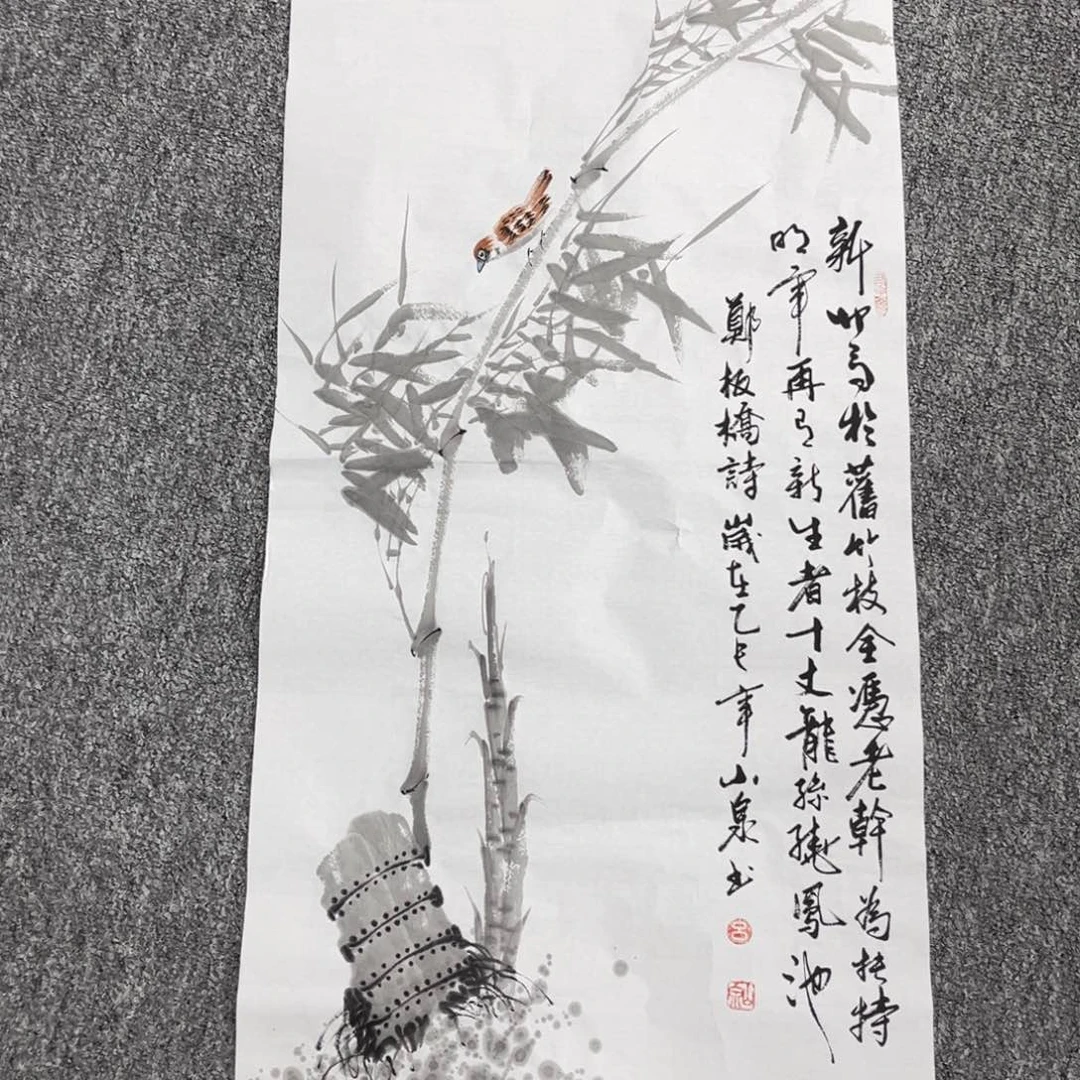 新竹高於舊竹枝全憑老幹為扶持
明年再有新生者十丈龍孫繞鳳池
鄭板橋詩 歲在乙巳年 山泉書
呂